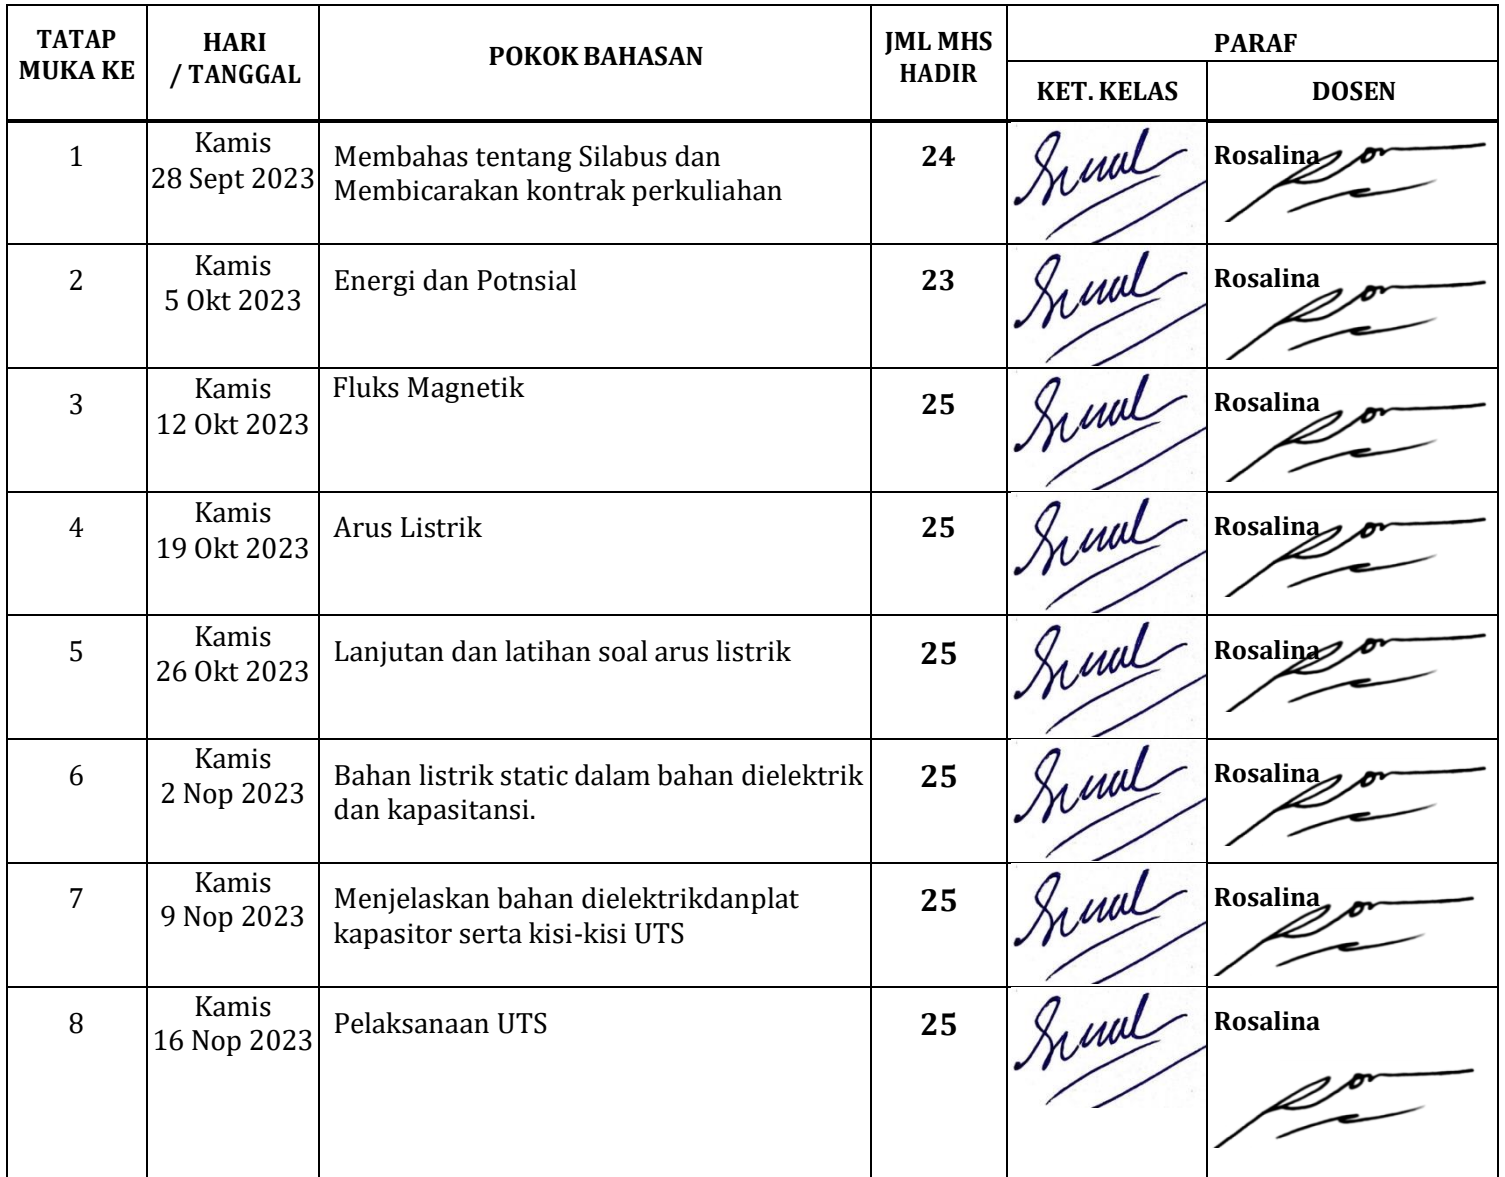 TATAP
MUKA KE
HARI
/ TANGGAL
POKOK BAHASAN
JML MHS
HADIR
PARAF
KET. KELAS
DOSEN
1
Kamis
28 Sept 2023
Membahas tentang Silabus dan
Membicarakan kontrak perkuliahan
24
Rosalina
2
Kamis
5 Okt 2023
Energi dan Potnsial
23
Rosalina
3
Kamis
12 Okt 2023
Fluks Magnetik
25
Rosalina
4
Kamis
19 Okt 2023
Arus Listrik
25
Rosalina
5
Kamis
26 Okt 2023
Lanjutan dan latihan soal arus listrik
25
Rosalina
6
Kamis
2 Nop 2023
Bahan listrik static dalam bahan dielektrik
dan kapasitansi.
25
Rosalina
7
Kamis
9 Nop 2023
Menjelaskan bahan dielektrikdanplat
kapasitor serta kisi-kisi UTS
25
Rosalina
8
Kamis
16 Nop 2023
Pelaksanaan UTS
25
Rosalina